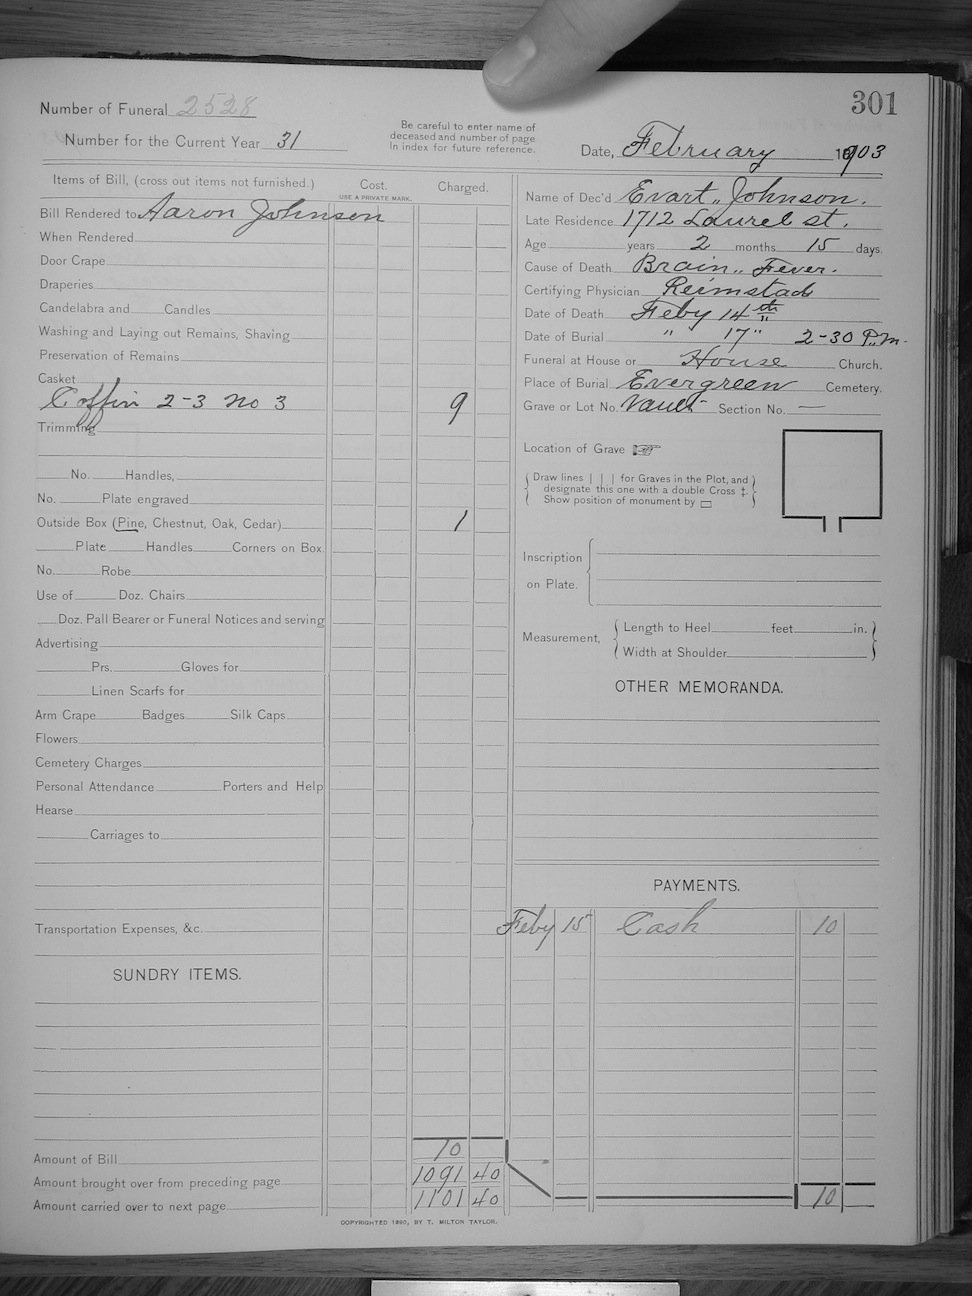 301
Number of Funeral 2528
Number for the Current Year 31
Be careful to enter name of
deceased and number of page
In index for future reference.
Date, February 1903
Items of Bill, (cross out items not furnished.)
Cost.
USE A PRIVATE MARK.
Charged.
Bill Rendered to Aaron Johnson
When Rendered
Door Crape
Draperies
Candelabra and Candles
Washing and Laying out Remains, Shaving
Preservation of Remains
Casket
Coffin 2-3 No 3 9
Trimming
No. Handles,
No. Plate engraved
Outside Box (Pine, Chestnut, Oak, Cedar) 1
Plate Handles Corners on Box.
No. Robe
Use of Doz. Chairs
Doz. Pall Bearer or Funeral Notices and serving
Advertising
Prs. Gloves for
Linen Scarfs for
Arm Crape Badges Silk Caps
Flowers
Cemetery Charges
Personal Attendance Porters and Help
Hearse
Carriages to
Transportation Expenses, &c.
SUNDRY ITEMS.
Amount of Bill 10
Amount brought over from preceding page 1091 40
Amount carried over to next page 1101 40
Name of Dec'd Evart Johnson.
Late Residence 1712 Laurel st.
Age years 2 months 15 days.
Cause of Death Brain Fever.
Certifying Physician Reimstad
Date of Death Feby 14th
Date of Burial " 17" 2-30 P.m.
Funeral at House or House Church.
Place of Burial Evergreen Cemetery.
Grave or Lot No. Vault Section No. —
Location of Grave
Draw lines | | | for Graves in the Plot, and
designate this one with a double Cross ‡.
Show position of monument by
Inscription
on Plate.
Measurement,
Length to Heel feet in.
Width at Shoulder
OTHER MEMORANDA.
PAYMENTS.
Feby 15 Cash 10
10
COPYRIGHTED 1890, BY T. MILTON TAYLOR.